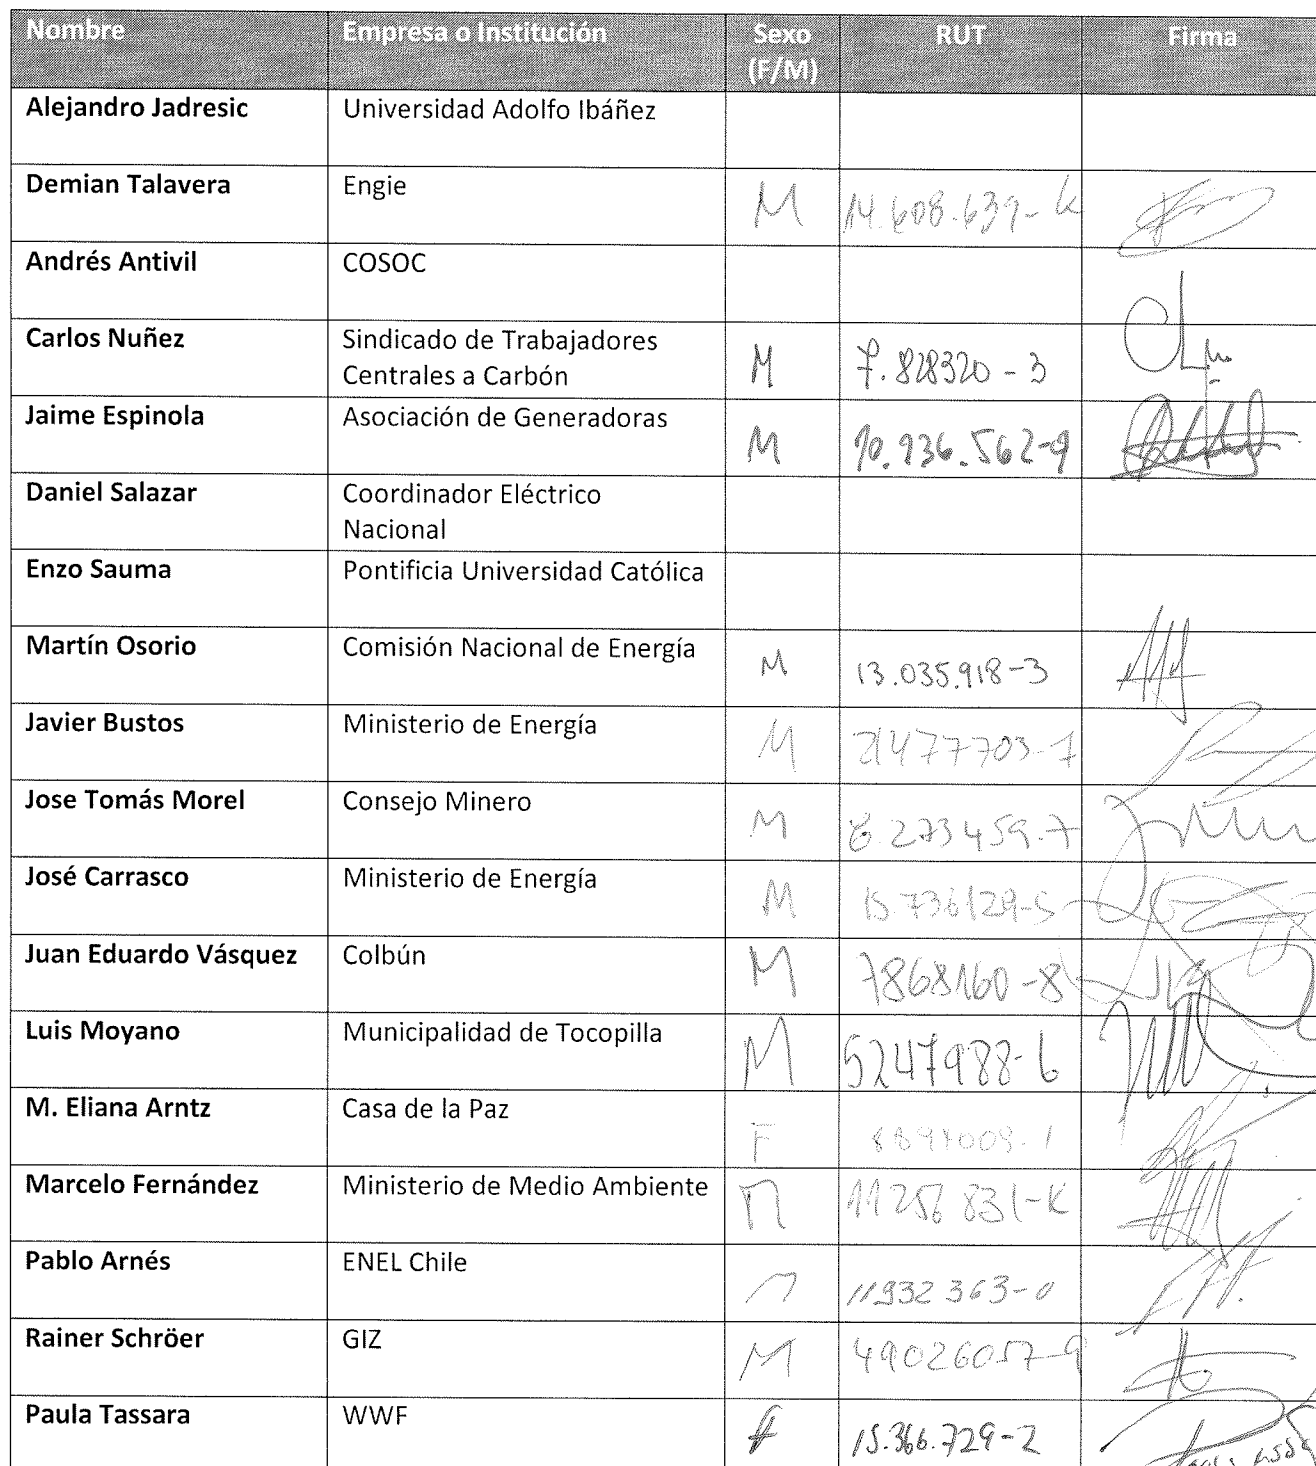 Nombre Empresa o Institución Sexo RUT Firma
(F/M)
Alejandro Jadresic Universidad Adolfo Ibáñez
Demian Talavera Engie M 14.608.639-k
Andrés Antivil COSOC
Carlos Nuñez Sindicado de Trabajadores M 7.828320-3
Centrales a Carbón
Jaime Espinola Asociación de Generadoras M 10.936.562-9
Daniel Salazar Coordinador Eléctrico
Nacional
Enzo Sauma Pontificia Universidad Católica
Martín Osorio Comisión Nacional de Energía M 13.035.918-3
Javier Bustos Ministerio de Energía M 21477703-1
Jose Tomás Morel Consejo Minero M 8.273459.7
José Carrasco Ministerio de Energía M 15.736129-5
Juan Eduardo Vásquez Colbún M 7868160-8
Luis Moyano Municipalidad de Tocopilla M 5247988-6
M. Eliana Arntz Casa de la Paz F
Marcelo Fernández Ministerio de Medio Ambiente M 11256831-K
Pablo Arnés ENEL Chile 11932363-0
Rainer Schröer GIZ M 49026057-9
Paula Tassara WWF F 15.366.729-2